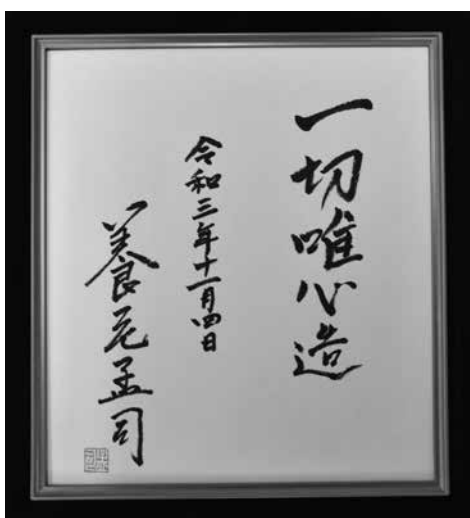 一切唯心造
令和三年十一月四日
養老孟司